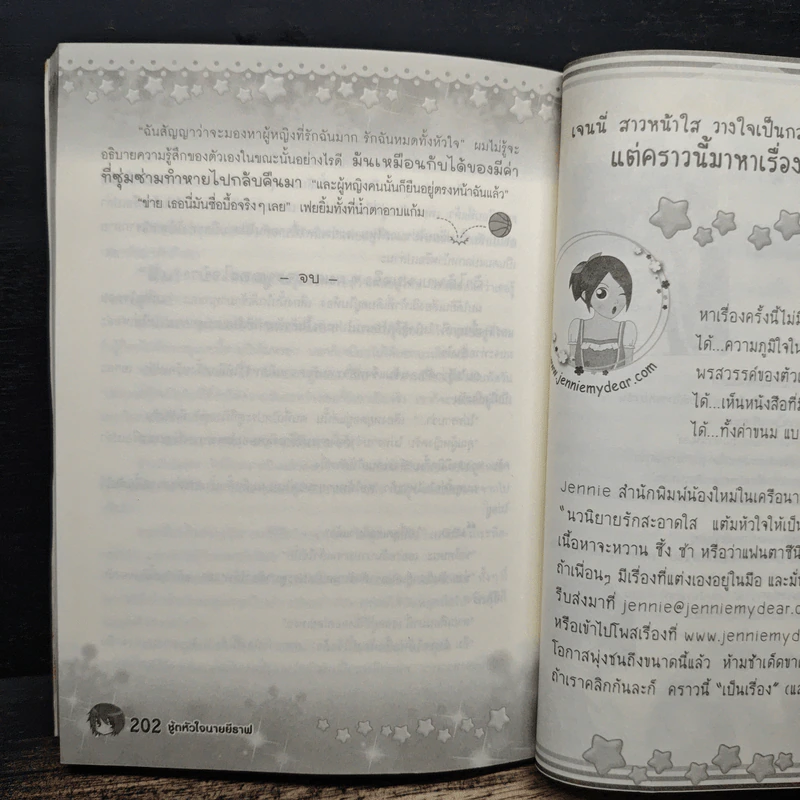 "ฉันสัญญาว่าจะมองหาผู้หญิงที่รักฉันมาก รักฉันหมดทั้งหัวใจ" ผมไม่รู้จะ
อธิบายความรู้สึกของตัวเองในขณะนั้นอย่างไรดี มันเหมือนกับได้ของมีค่า
ที่ซุ่มซ่ามทำหายไปกลับคืนมา "และผู้หญิงคนนั้นก็ยืนอยู่ตรงหน้าฉันแล้ว"
"ข่าย เธอนี่มันซื่อบื้อจริงๆ เลย" เฟยยิ้มทั้งที่น้ำตาอาบแก้ม
- จบ -
202 ชู้ตหัวใจนายยีราฟ
เจนนี่ สาวหน้าใส วางใจเป็นกว
แต่คราวนี้มาหาเรื่อง
www.jenniemydear.com
หาเรื่องครั้งนี้ไม่มี
ได้...ความภูมิใจใน
พรสวรรค์ของตัว
ได้...เห็นหนังสือที่
ได้...ทั้งค่าขนม แบ
Jennie สำนักพิมพ์น้องใหม่ในเครือนา
"นวนิยายรักสะอาดใส แต้มหัวใจให้เป็น
เนื้อหาจะหวาน ซึ้ง ซ่า หรือว่าแฟนตาซี
ถ้าเพื่อนๆ มีเรื่องที่แต่งเองอยู่ในมือ และมั่น
รีบส่งมาที่ jennie@jenniemydear.c
หรือเข้าไปโพสเรื่องที่ www.jenniemyd
โอกาสพุ่งชนถึงขนาดนี้แล้ว ห้ามช้าเด็ดขา
ถ้าเราคลิกกันละก็ คราวนี้ "เป็นเรื่อง" (แล